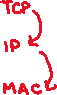 TCP
IP
MAC